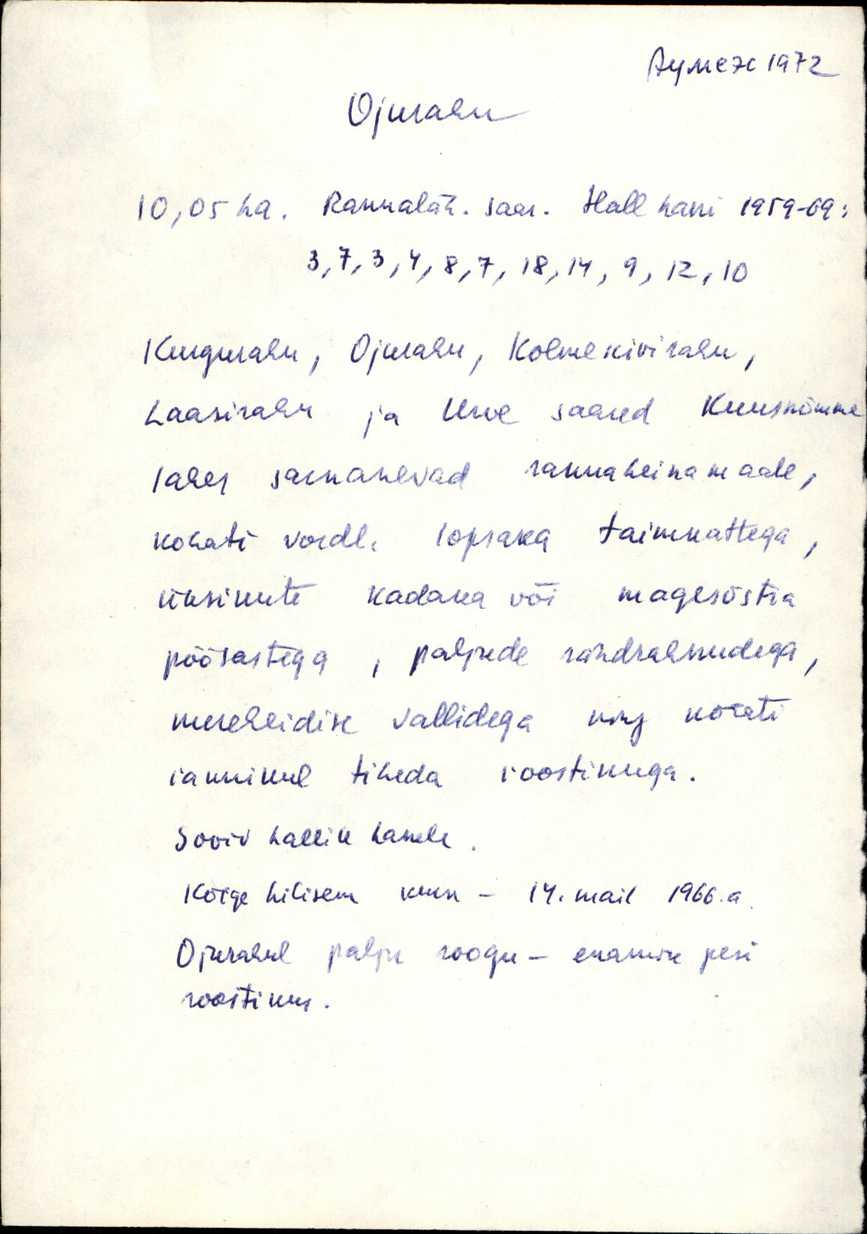 Аумеж 1972
Ojurahu
10,05 ha. Rannaläh. saar. Hall hani 1959-69:
3, 7, 3, 4, 8, 7, 18, 14, 9, 12, 10
Kurgurahu, Ojurahu, Kolmekivirahu,
Laasirahu ja Urve saared Kuusnõmme
lahes sarnanevad rannaheinamaale,
kohati võrdl. lopsaka taimkattega,
üksikute kadaka või magesõstra
põõsastega, paljude rändrahnudega,
mereheidise vallidega ning kohati
rannikul tiheda roostikuga.
Sobiv hallile hanele.
Kõige hilisem kurn - 14. mail 1966.a.
Ojurahul palju roogu - enamik pesi
roostikus.